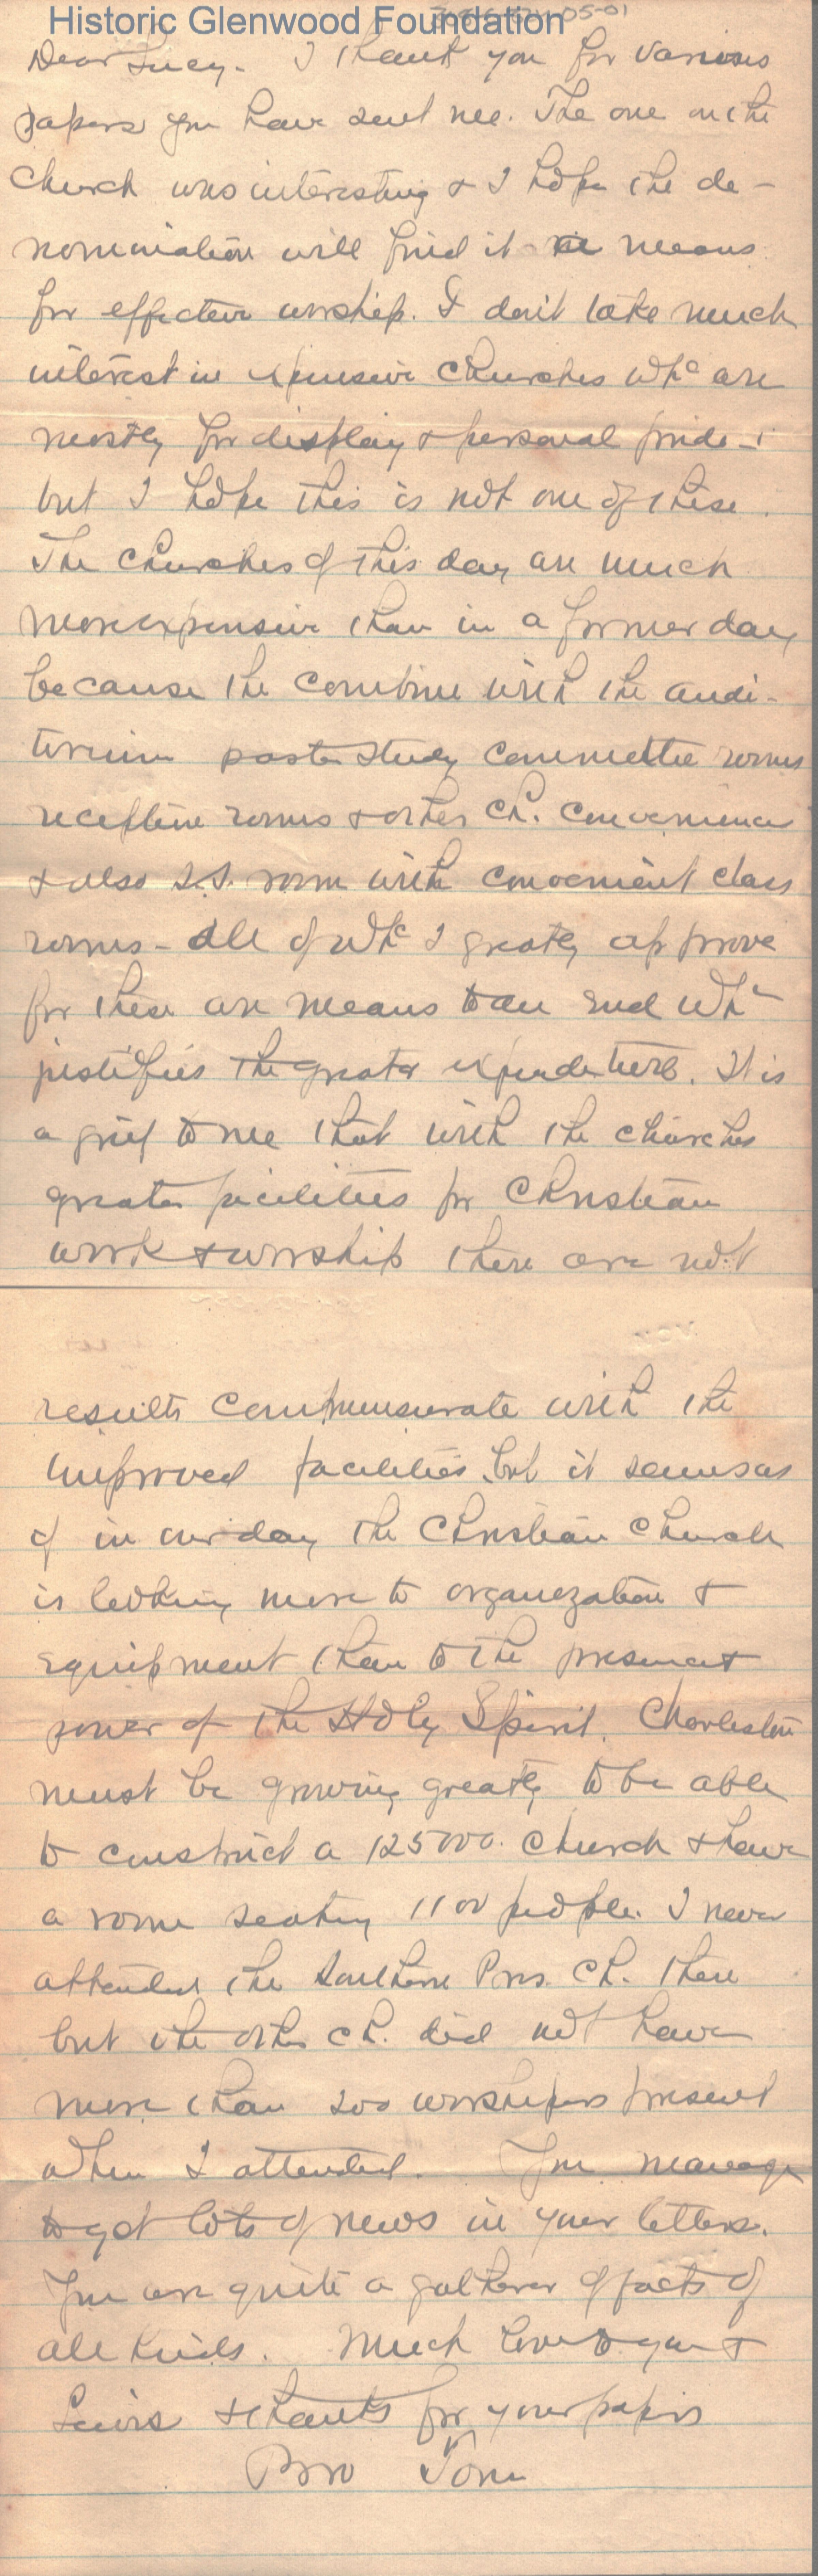 Historic Glenwood Foundation
Dear Lucy. I thank you for various
papers you have sent me. The one on the
church was interesting & I hope the de-
nomination will find it a means
for effective worship. I don't take much
interest in expensive churches whc are
mostly for display & personal pride -
but I hope this is not one of these.
The churches of this day are much
more expensive than in a former day
because the combine with the audi-
torium pastor study committee rooms
reception rooms & other ch. conveniences
& also S.S. room with convenient class
rooms - all of whc I greatly approve
for these are means to an end whc
justifies the greater expenditure. It is
a grief to me that with the churches
greater facilities for Christian
work & worship there are not
results commensurate with the
improved facilities, but it seems as
if in our day the Christian church
is looking more to organization &
equipment than to the presence &
power of the Holy Spirit. Charleston
must be growing greatly to be able
to construct a 125000. church & have
a room seating 1100 people. I never
attended the Southern Pres. Ch. there
but the other ch. did not have
more than 200 worshipers present
when I attended. You manage
to get lots of news in your letters.
You are quite a gatherer of facts of
all kinds. Much love to you &
Lewis & thanks for your papers
Bro Tom